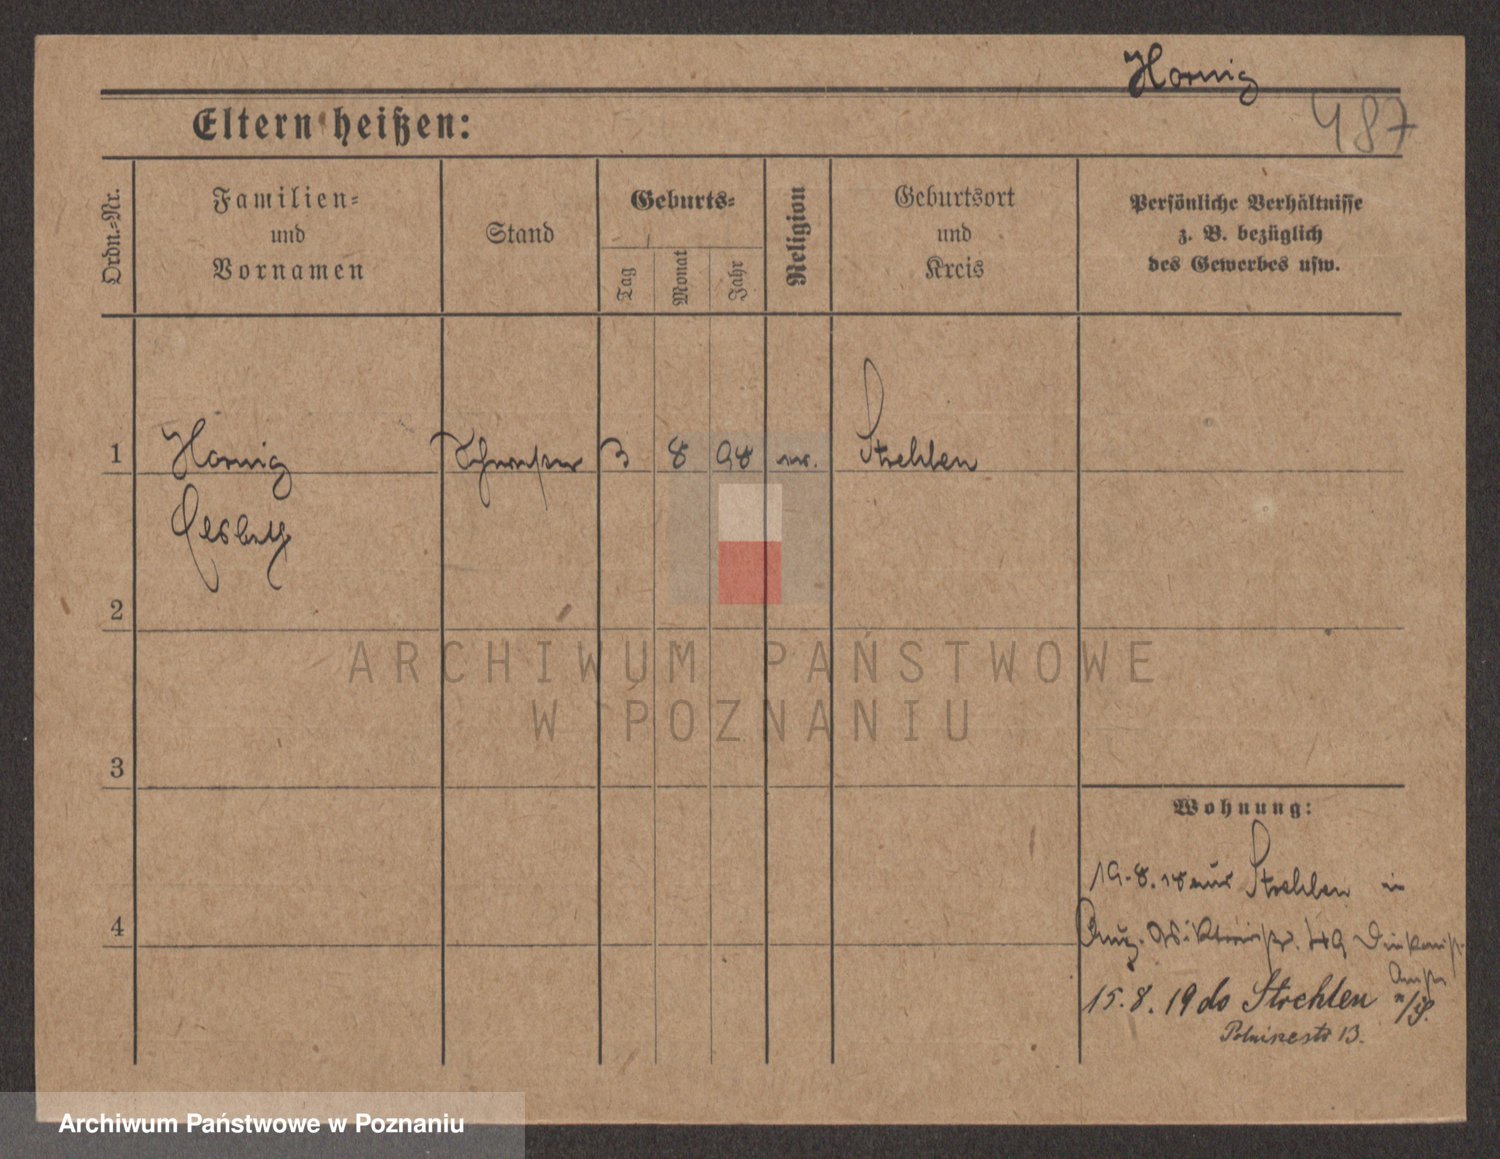 Hornig
487
Eltern heißen:
Ordn.=Nr.
Familien=
und
Vornamen
Stand
Geburts=
Tag
Monat
Jahr
Religion
Geburtsort
und
Kreis
Persönliche Verhältnisse
z. B. bezüglich
des Gewerbes usw.
1
Hornig
Schwester
3 8 98
Strehlen
Elsbeth
2
ARCHIWUM PAŃSTWOWE
W POZNANIU
3
Wohnung:
19.8.18 aus Strehlen in
4
Aug. Viktoriastr.
15.8.19 do Strehlen n/S.
13.
Archiwum Państwowe w Poznaniu